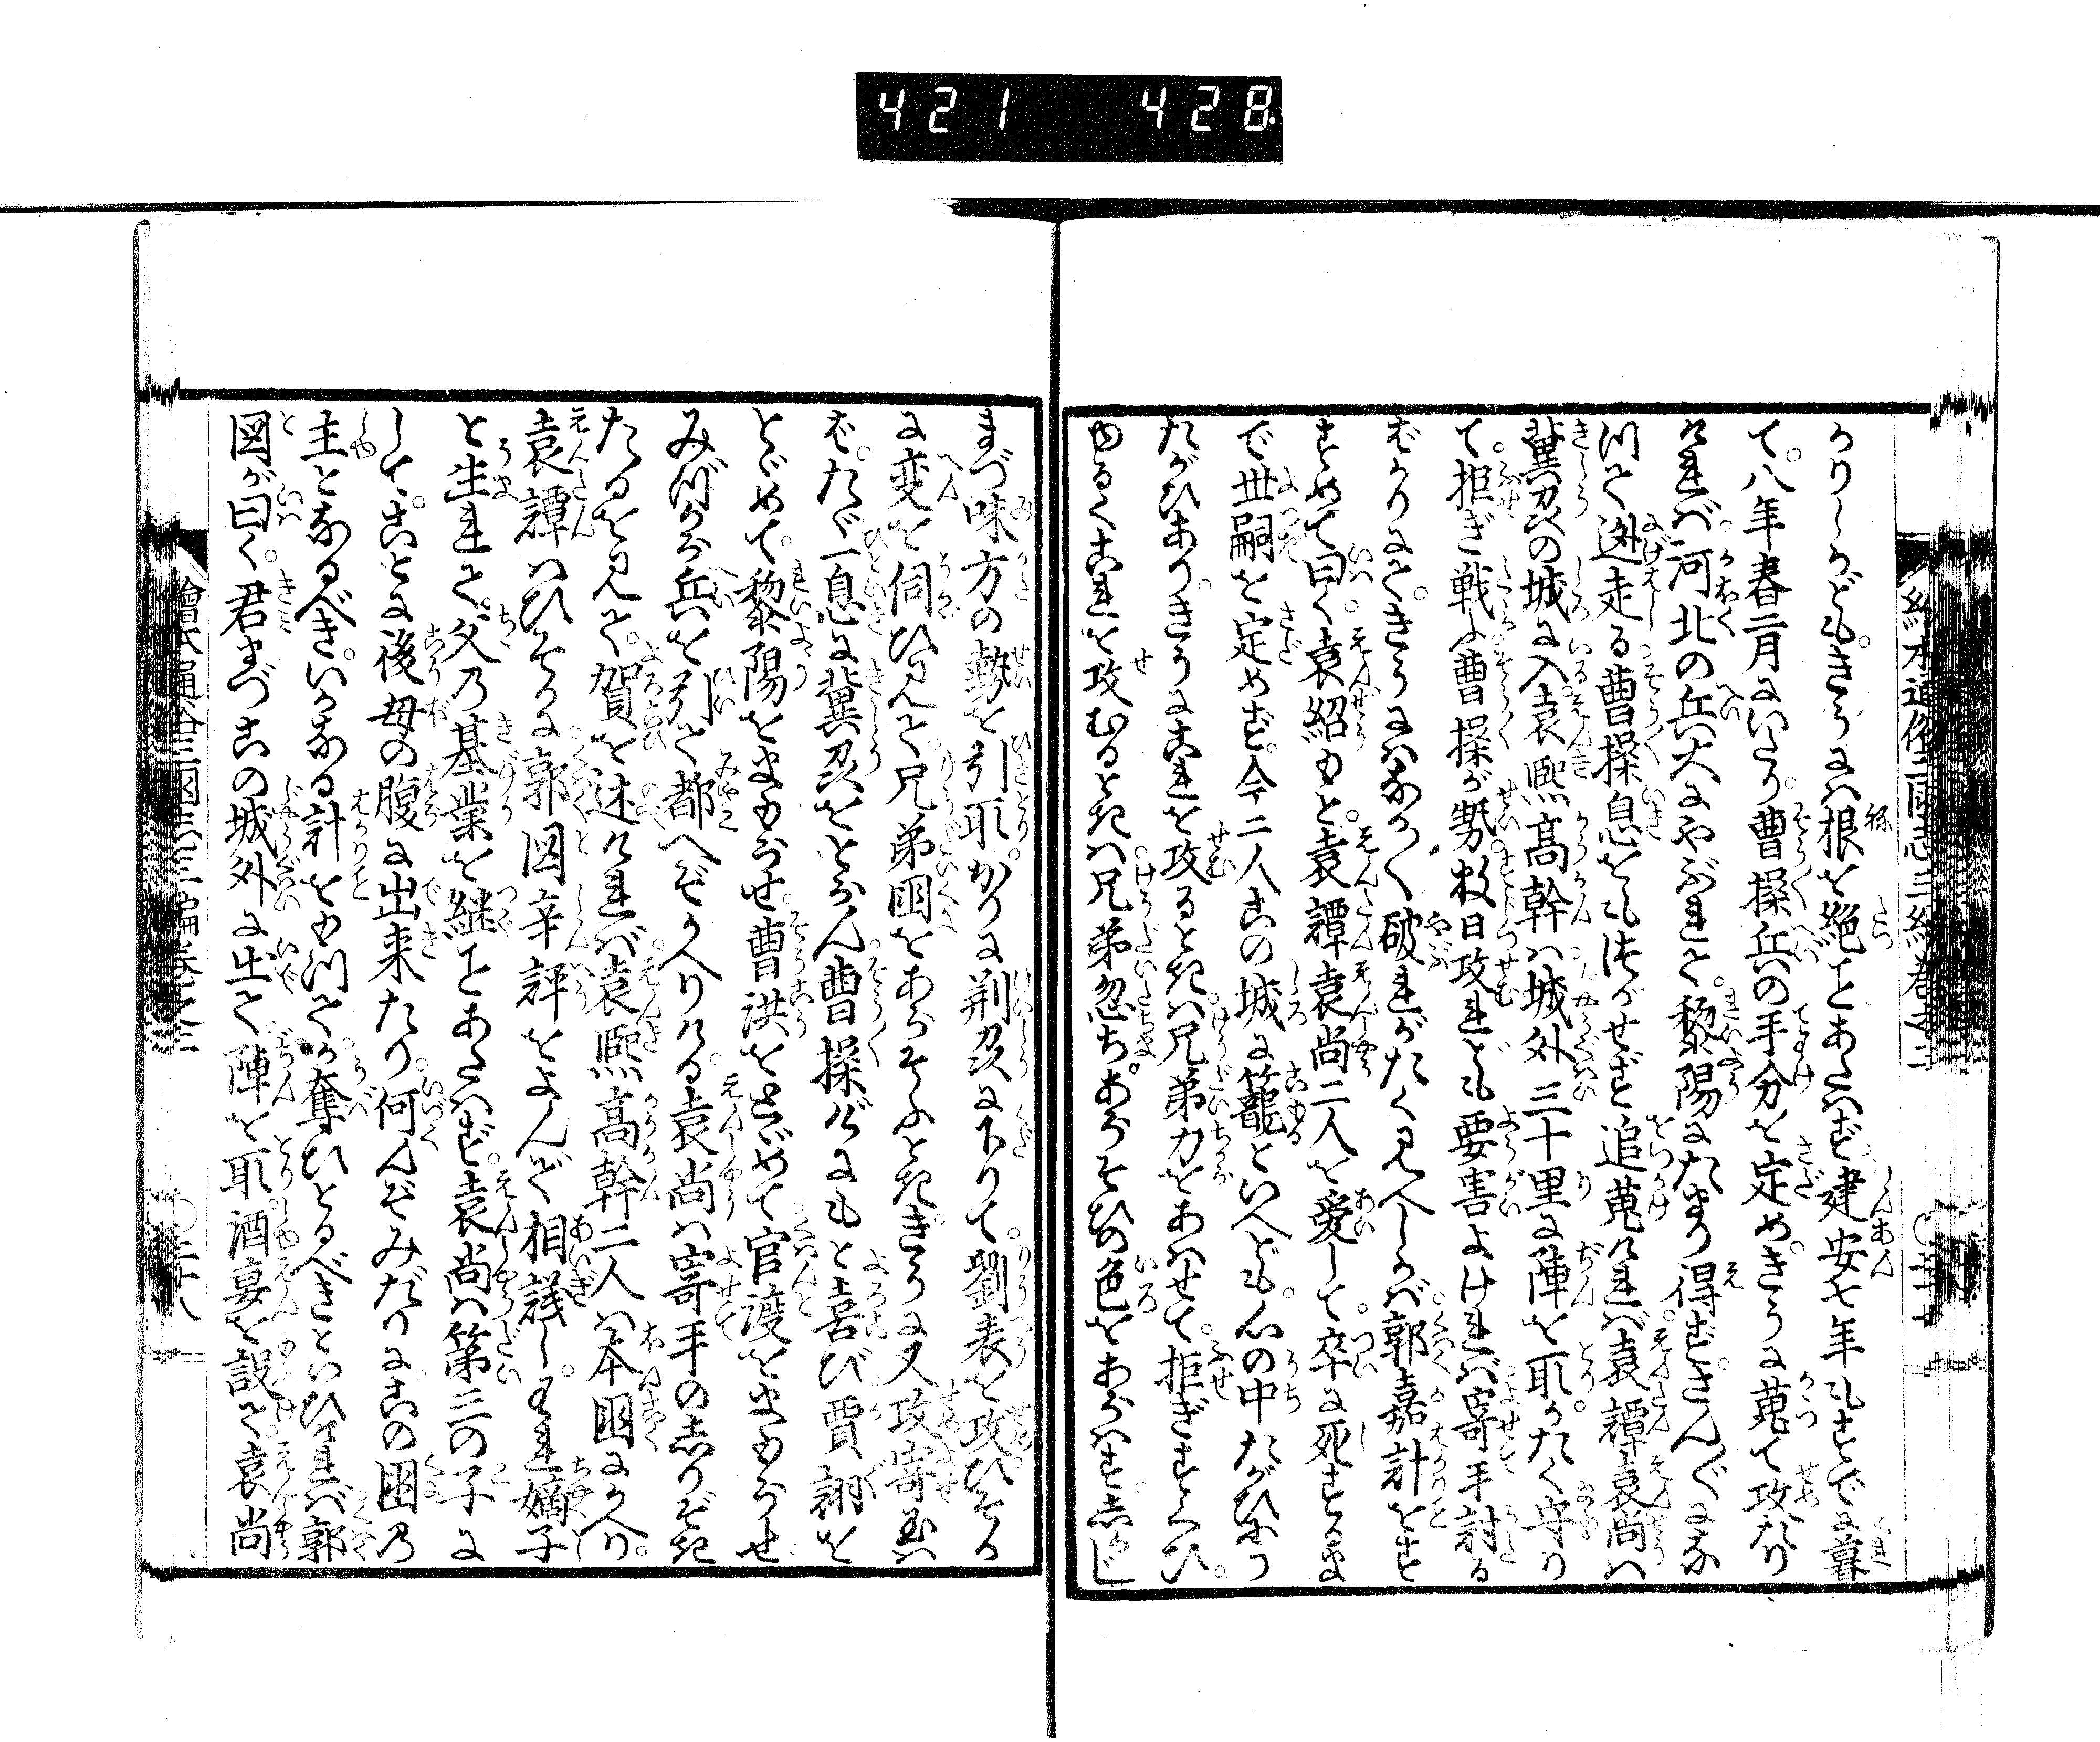 421 428
かりしかども。きうには根を絶ことあたはず建安七年もすでに暮
て。八年春二月にいたり。曹操兵の手分を定め。きうに蒐て攻たり
ければ河北の兵大にやぶれて。黎陽にたまり得ず。さんざんになつて
逃走る曹操息をもつがせず追蒐ければ袁譚袁尚は
冀州の城に入。袁熙高幹は城外三十里に陣を取。かたく守り
て。拒ぎ戦ふ曹操が勢。数日攻れども要害よければ寄手討る
ばかりにて。きうにはなかなか破れがたく見へしかば郭嘉計をす
すめて曰く。袁紹もと。袁譚袁尚二人を愛して。卒に死すまま
で世嗣を定めず。今二人この城に籠といへども。心の中たがひにう
たがひあり。きうにこれを攻るときは。兄弟力をあはせて。拒ぎすくひ。
ゆるくこれを攻むるときは兄弟忽ち。あらそひの色をあらはすべし
まづ味方の勢を引取。かりに荊州に下りて。劉表を攻ひそか
に変を伺ひ見て。兄弟国をあらそふとき。きうに又攻寄玉は
ば。たゞ一息に冀州をとらん曹操げにもと喜び賈詡を
とゞめて。黎陽をまもらせ。曹洪をとゞめて官渡をまもらせ
みづから兵を引て都へぞかへりける。袁尚は寄手のしりぞき
たるを見て。賀を述ければ。袁熙高幹二人は本国にかへり。
袁譚はひそかに郭図辛評をよんで相議し。われ嫡子
と生れて。父の基業を継ことあたはず。袁尚は第三の子に
して。ことに後母の腹に出来たり。何んぞみだりにこの国の
主となるべき。いかなる計をもつてか奪ひとるべきといひければ郭
図が曰く。君まづこの城外に出て陣を取。酒宴を設て。袁尚
絵本通俗三国志三編巻之三